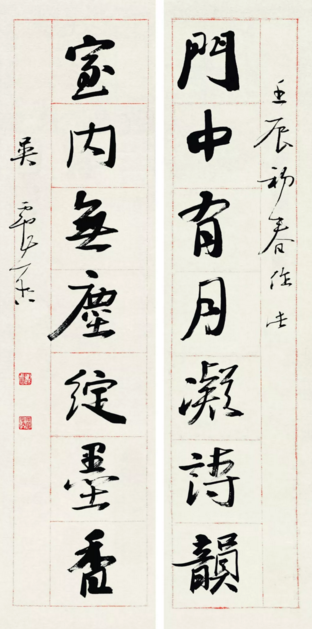 壬辰初春作
門中有月凝詩韻
室内無塵綻墨香
吴